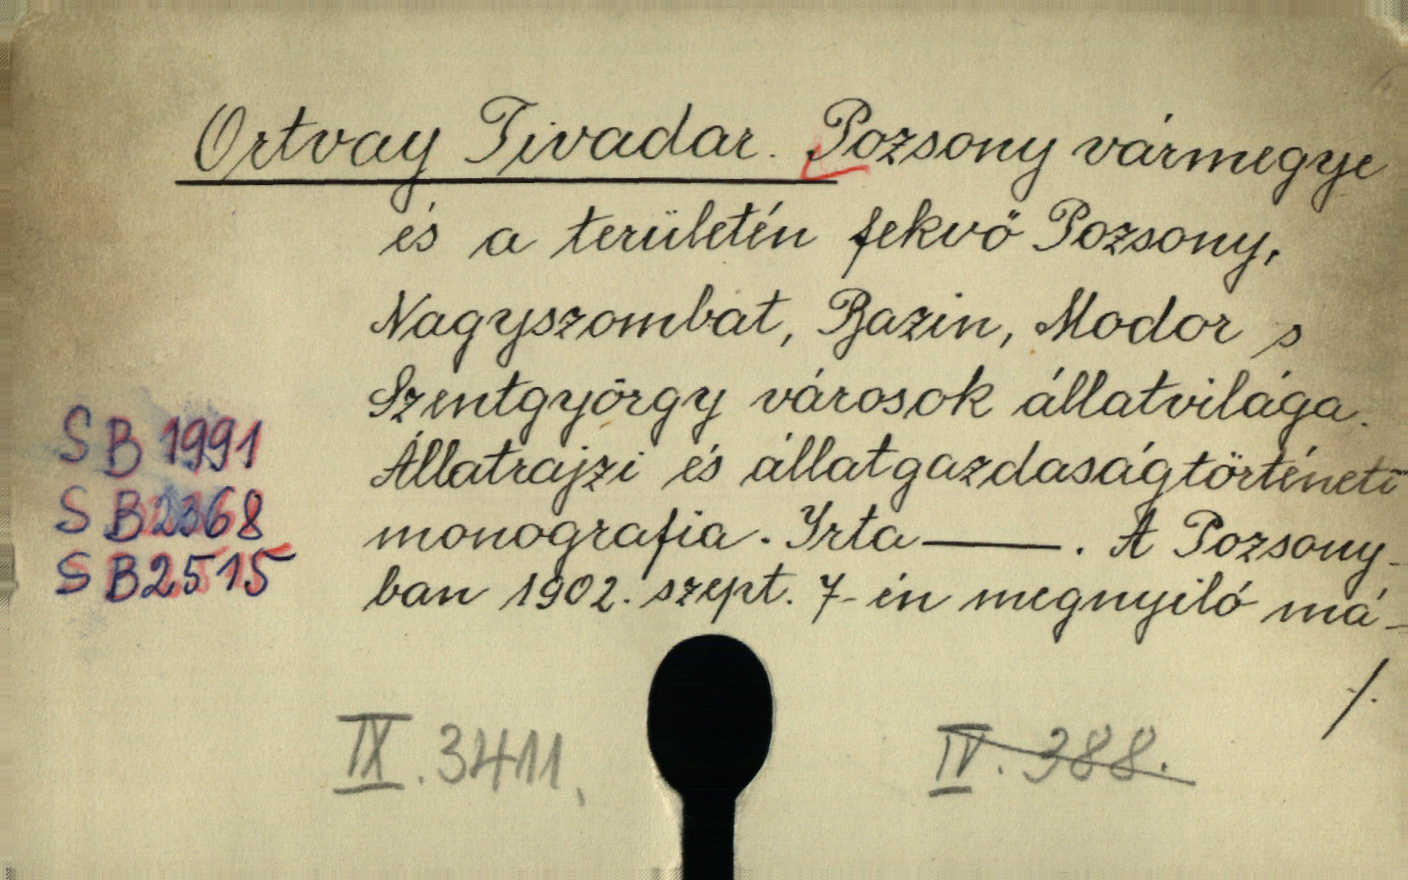 Ortvay Tivadar. Pozsony vármegye
és a területén fekvő Pozsony,
Nagyszombat, Bazin, Modor s
Szentgyörgy városok állatvilága.
Állatrajzi és állatgazdaságtörténeti
monografia. Irta ———. A Pozsony-
ban 1902. szept. 7-én megnyiló má-
./.
S B 1991
S B 2368
S B 2515
IX. 3411,
IV. 388.